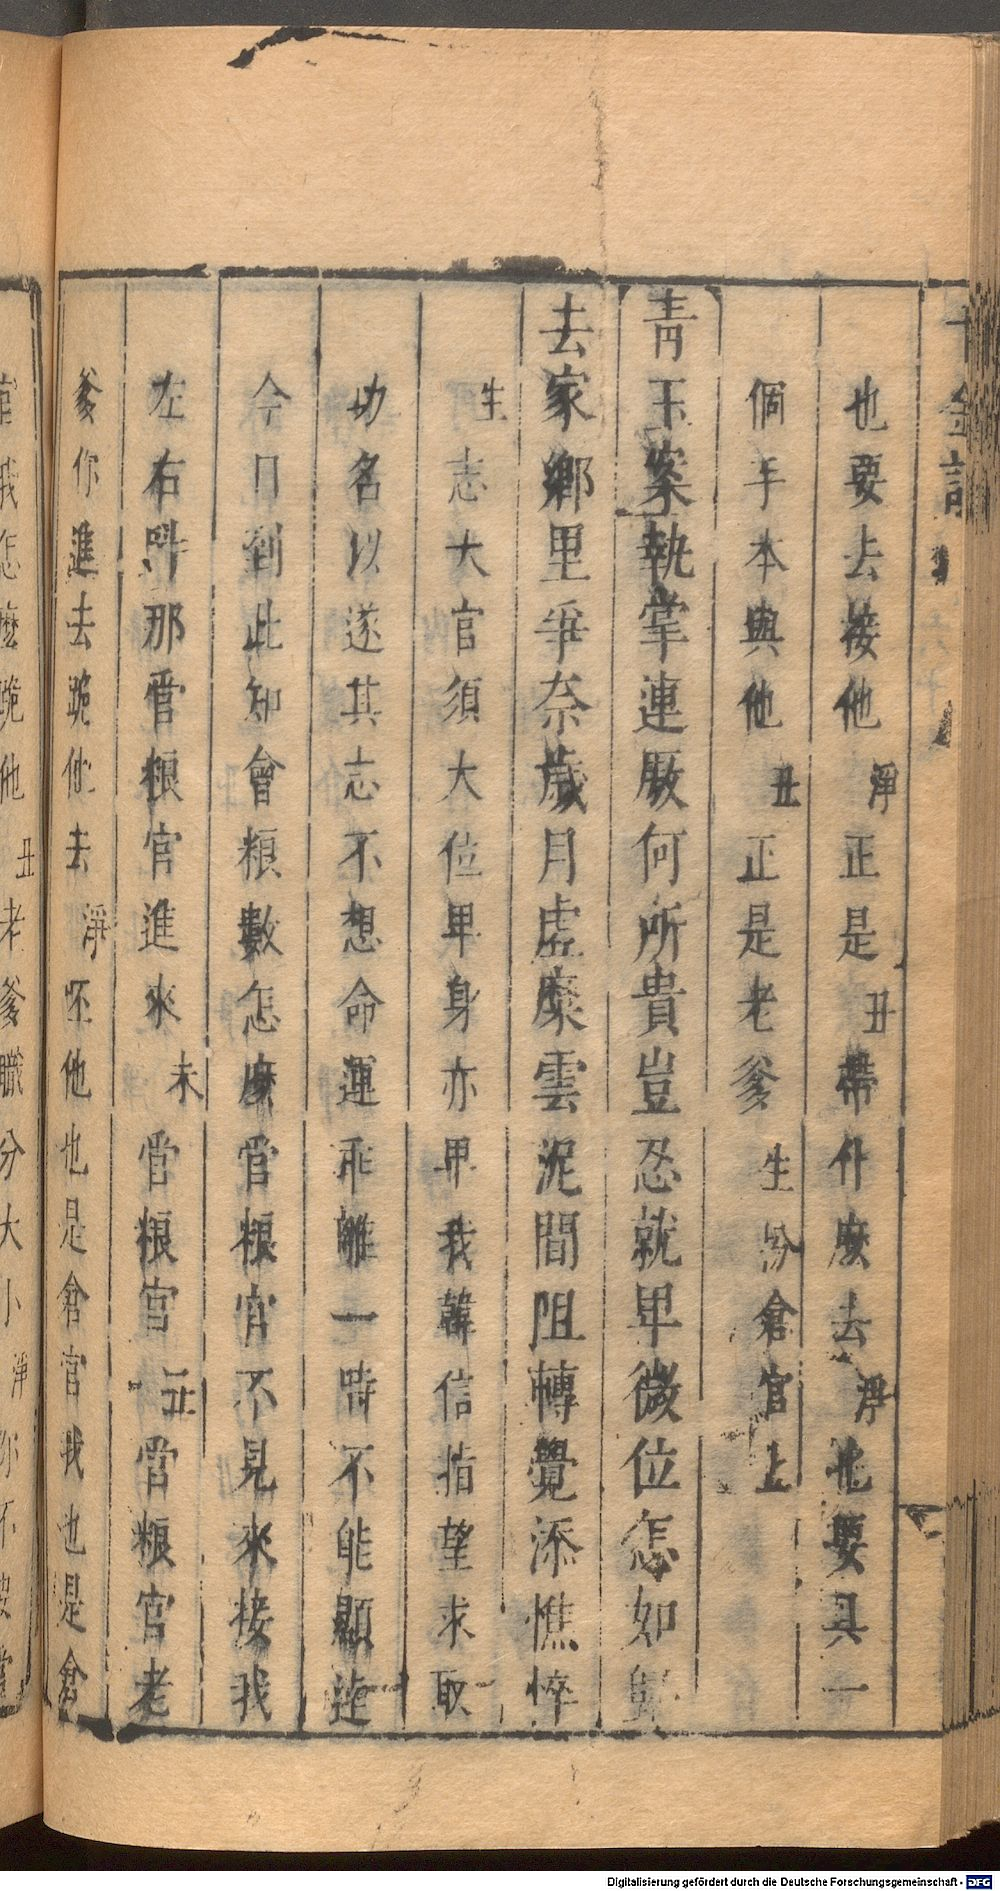 千金記
也要去接他淨正是丑帶什麽去淨也要具一
個手本與他丑正是老爹生扮倉官上
青玉案執掌連厫何所貴豈忍就卑微位怎如歸
去家鄉里爭奈歲月虛糜雲泥間阻轉覺添憔悴
生志大官須大位卑身亦卑我韓信指望求取
功名以遂其志不想命運乖離一時不能顯迹
今日到此知會粮數怎麽管粮官不見來接我
左右呌那管粮官進來末管粮官丑管粮官老
爹你進去跪他去淨呸他也是倉官我也是倉
官我怎麽跪他丑老爹職分大小淨你不